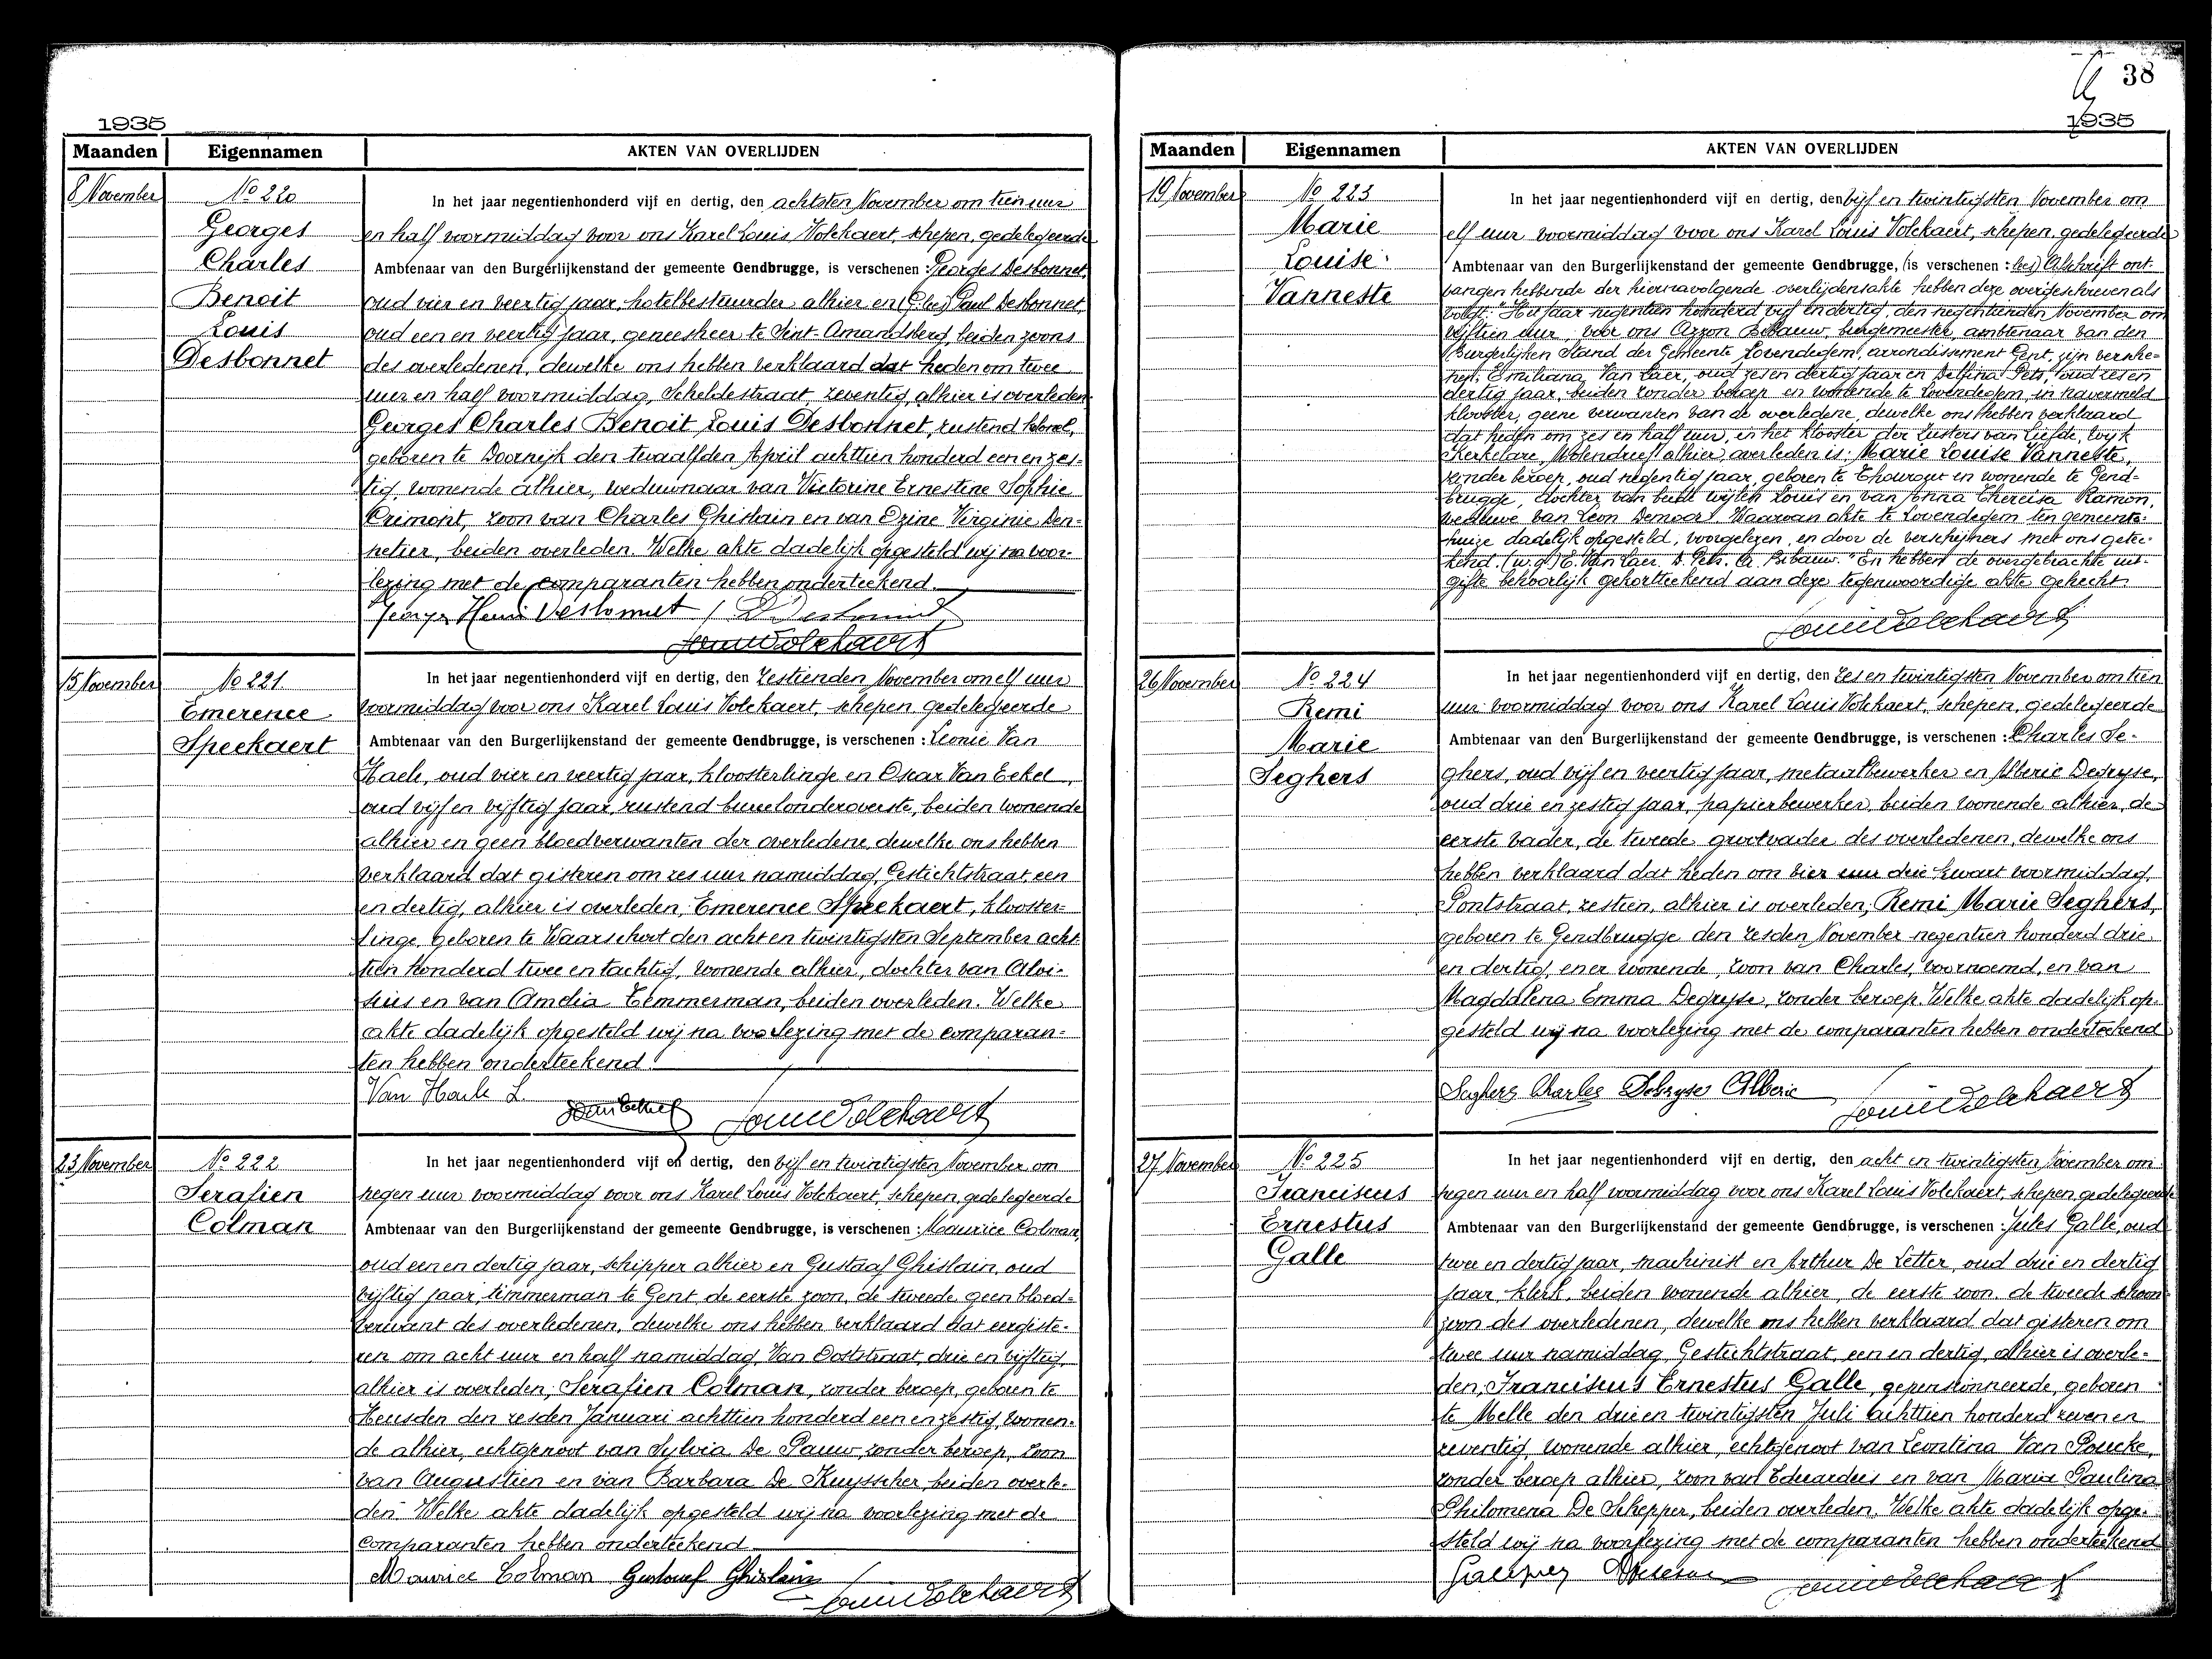 1935
Maanden Eigennamen AKTEN VAN OVERLIJDEN
8 November
No 220
Georges
Charles
Benoit
Louis
Desbonnet
In het jaar negentienhonderd vijf en dertig, den achtsten November om tien uur
en half voormiddag voor ons Karel Louis Volckaert, schepen, gedelegeerde
Ambtenaar van den Burgerlijkenstand der gemeente Gendbrugge, is verschenen : Georges Desbonnet,
oud vier en veertig jaar, hotelbestuurder alhier en (G: lees) Paul Desbonnet,
oud een en veertig jaar, geneesheer te Sint-Amandsberg, beiden zoons
des overledenen, dewelke ons hebben verklaard dat heden om twee
uur en half voormiddag, Scheldestraat, zeventig, alhier is overleden
Georges Charles Benoit Louis Desbonnet, rustend kolonel,
geboren te Doornijk den twaalfden April achttien honderd een en zes-
tig, wonende alhier, weduwnaar van Victorine Ernestine Sophie
Crimont, zoon van Charles Ghislain en van Ozine Virginie Den-
netier, beiden overleden. Welke akte dadelijk opgesteld wij na voor-
lezing met de comparanten hebben onderteekend.
Georges Henri Desbonnet / P Desbonnet
Louis Volckaert
15 November
No 221.
Emerence
Speekaert
In het jaar negentienhonderd vijf en dertig, den zestienden November om elf uur
voormiddag voor ons Karel Louis Volckaert, schepen, gedelegeerde
Ambtenaar van den Burgerlijkenstand der gemeente Gendbrugge, is verschenen : Leonie Van
Haele, oud vier en veertig jaar, kloosterlinge en Oscar Van Eekel,
oud vijf en vijftig jaar, rustend bureelonderoverste, beiden wonende
alhier en geen bloedverwanten der overledene, dewelke ons hebben
verklaard dat gisteren om zes uur namiddag, Gestichtstraat, een
en dertig, alhier is overleden, Emerence Speekaert, klooster-
linge, geboren te Waarschoot den acht en twintigsten September acht-
tien honderd twee en tachtig, wonende alhier, dochter van Aloï-
sius en van Amelia Temmerman, beiden overleden. Welke
akte dadelijk opgesteld wij na voorlezing met de comparan-
ten hebben onderteekend.
Van Haele L.
Van Eekel Louis Volckaert
23 November
No 222
Serafien
Colman
In het jaar negentienhonderd vijf en dertig, den vijf en twintigsten November om
negen uur voormiddag voor ons Karel Louis Volckaert, schepen, gedelegeerde
Ambtenaar van den Burgerlijkenstand der gemeente Gendbrugge, is verschenen : Maurice Colman,
oud een en dertig jaar, schipper alhier en Gustaaf Ghislain, oud
vijftig jaar, timmerman te Gent, de eerste zoon, de tweede geen bloed-
verwant des overledenen, dewelke ons hebben verklaard dat eergiste-
ren om acht uur en half namiddag, Van Ooststraat, drie en vijftig,
alhier is overleden, Serafien Colman, zonder beroep, geboren te
Heusden den zesden Januari achttien honderd een en zestig, wonen-
de alhier, echtgenoot van Sylvia De Pauw, zonder beroep, zoon
van Augustien en van Barbara De Kuysscher, beiden overle-
den. Welke akte dadelijk opgesteld wij na voorlezing met de
comparanten hebben onderteekend
Maurice Colman Gustaaf Ghislain
Louis Volckaert
38
1935
Maanden Eigennamen AKTEN VAN OVERLIJDEN
19 November
No 223
Marie
Louise
Vanneste
In het jaar negentienhonderd vijf en dertig, den vijf en twintigsten November om
elf uur voormiddag voor ons Karel Louis Volckaert, schepen, gedelegeerde
Ambtenaar van den Burgerlijkenstand der gemeente Gendbrugge, (is verschenen : lees) Afschrift ont-
vangen hebbende der hiernavolgende overlijdensakte hebben deze overgeschreven als
volgt: "Het jaar negentien honderd vijf en dertig, den negentienden November om
vijftien uur, voor ons Azzon Bibauw, burgemeester, ambtenaar van den
Burgerlijken Stand der Gemeente Lovendegem, arrondissement Gent, zijn versche-
nen: Emiliana Van Laer, oud zes en dertig jaar en Delfina Pets, oud zes en
dertig jaar, beiden zonder beroep en wonende te Lovendegem, in navermeld
klooster, geene verwanten van de overledene, dewelke ons hebben verklaard
dat heden om zes en half uur, in het klooster der Zusters van Liefde, wijk
Kerkelare, Molendreef alhier, overleden is: Marie Louise Vanneste,
zonder beroep, oud negentig jaar, geboren te Thourout en wonende te Gend-
brugge, dochter van lieden wijlen Louis en van Anna Theresia Ramon,
weduwe van Leon Demoor. Waarvan akte te Lovendegem ten gemeente-
huize dadelijk opgesteld, voorgelezen, en door de verschijners met ons getee-
kend. (w.g.) E. Van Laer. D. Pets. A. Bibauw." En hebben de overgebrachte uit-
gifte behoorlijk gekortteekend aan deze tegenwoordige akte gehecht.
Louis Volckaert
26 November
No 224
Remi
Marie
Seghers
In het jaar negentienhonderd vijf en dertig, den zes en twintigsten November om tien
uur voormiddag voor ons Karel Louis Volckaert, schepen, gedelegeerde
Ambtenaar van den Burgerlijkenstand der gemeente Gendbrugge, is verschenen : Charles Se-
ghers, oud vijf en veertig jaar, metaalbewerker en Alberic Degryse,
oud drie en zestig jaar, papierbewerker, beiden wonende alhier, de
eerste vader, de tweede grootvader des overledenen, dewelke ons
hebben verklaard dat heden om vier uur drie kwart voormiddag,
Pontstraat, zestien, alhier is overleden, Remi Marie Seghers,
geboren te Gendbrugge den zesden November negentien honderd drie
en dertig, en er wonende, zoon van Charles, voornoemd, en van
Magdalena Emma Degryse, zonder beroep. Welke akte dadelijk op-
gesteld wij na voorlezing met de comparanten hebben onderteekend
Seghers Charles Degryse Alberic Louis Volckaert
27 November
No 225
Franciscus
Ernestus
Galle
In het jaar negentienhonderd vijf en dertig, den acht en twintigsten November om
negen uur en half voormiddag voor ons Karel Louis Volckaert, schepen, gedelegeerde
Ambtenaar van den Burgerlijkenstand der gemeente Gendbrugge, is verschenen : Jules Galle, oud
twee en dertig jaar, machinist en Arthur De Letter, oud drie en dertig
jaar, klerk, beiden wonende alhier, de eerste zoon, de tweede schoon-
zoon des overledenen, dewelke ons hebben verklaard dat gisteren om
twee uur namiddag, Gestichtstraat, een en dertig, alhier is overle-
den, Franciscus Ernestus Galle, gepensionneerde, geboren
te Melle den drie en twintigsten Juli achttien honderd zeven en
zeventig, wonende alhier, echtgenoot van Leontina Van Poucke,
zonder beroep alhier, zoon van Eduardus en van Maria Paulina
Philomena De Schepper, beiden overleden. Welke akte dadelijk opge-
steld wij na voorlezing met de comparanten hebben onderteekend
Louis Volckaert